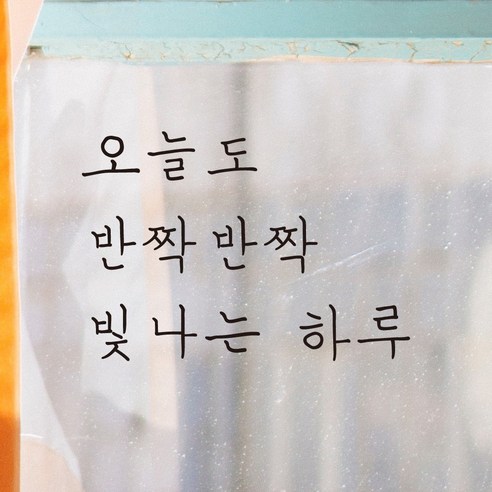 오늘도
반짝반짝
빛나는 하루